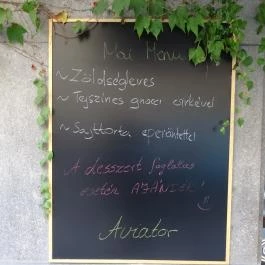 Mai Menü
~ Zöldségleves
~ Tejszínes gnocci csirkével
~ Sajttorta eperöntettel
A desszert foglalás
esetén AJÁNDÉK!
Aviator